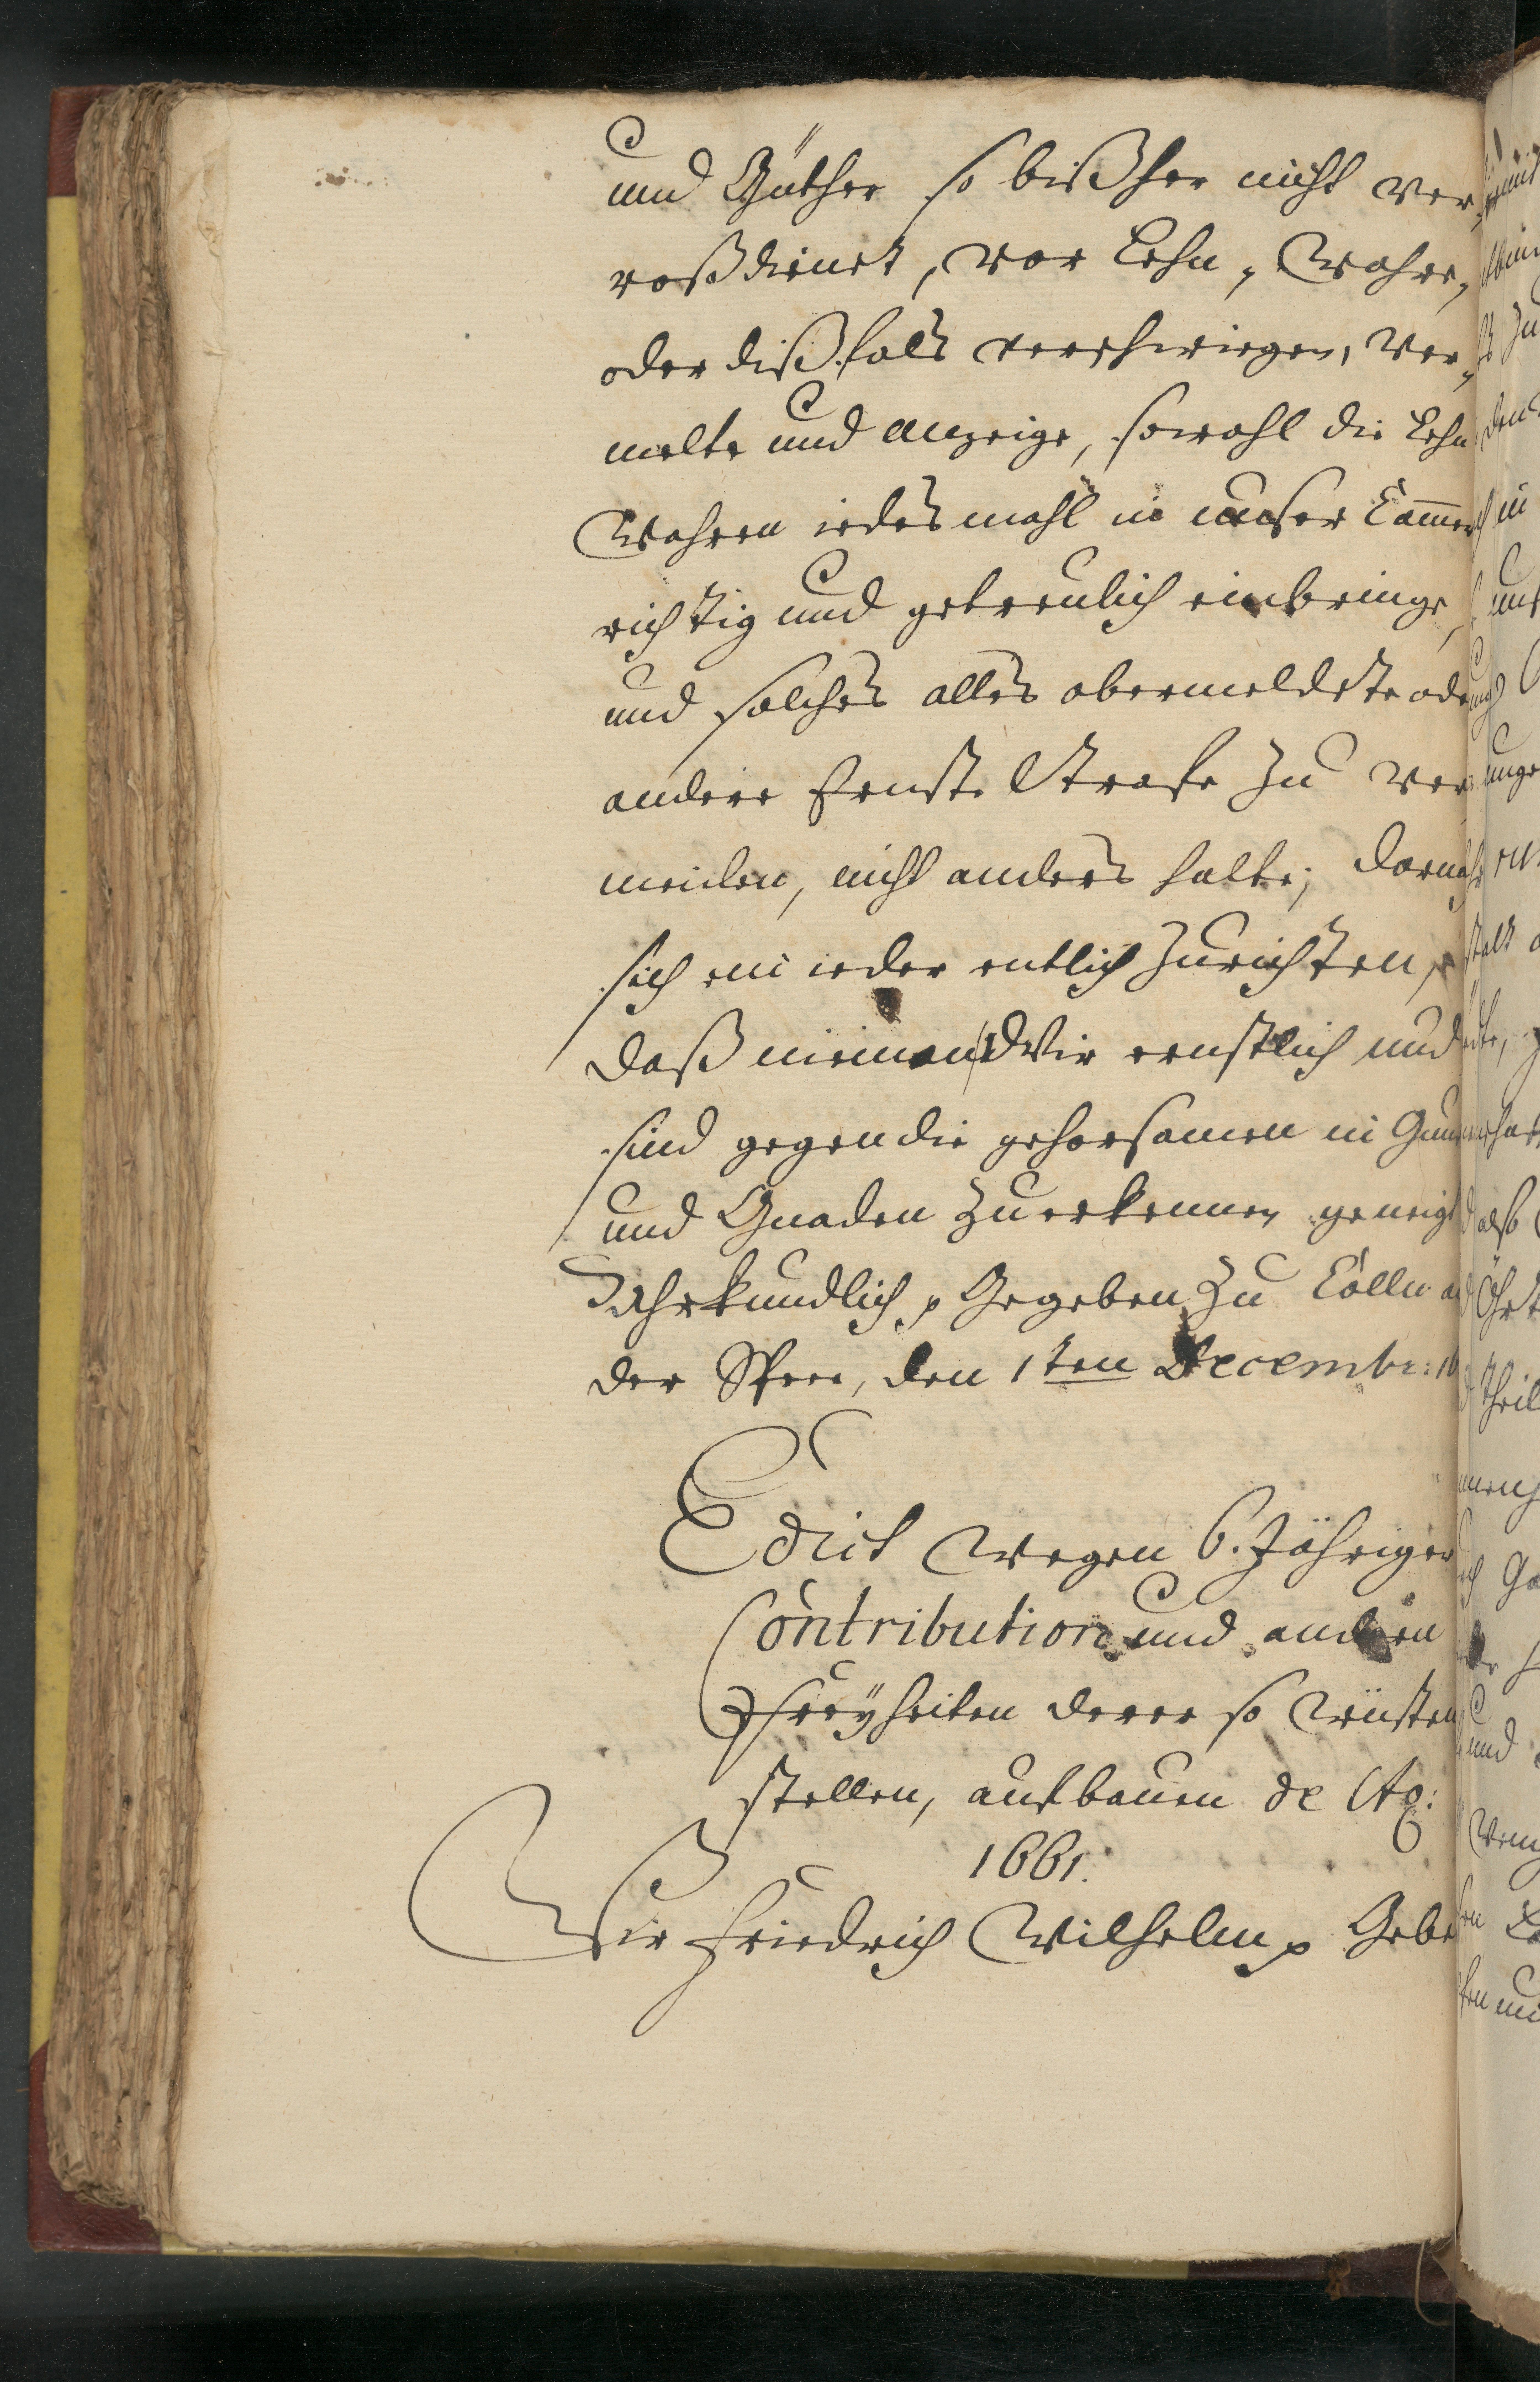 und Güther so bißher nicht ver-
roßdienet, vor Lehn, Wahre,
oder dißfals verschwiegen, ver-
melte und anzeige, sowohl die Lehn
Wahren iedes mahl in unser Cammer
richtig und getreulich einbringe,
und solches alles obermeldete oder
andere Ernste Strafe zu ver-
meiden, nicht anders halte; darnach
sich ein ieder entlich zurichten,
daß meinen Wir ernstlich und
sind gegen die gehorsamen in
und Gnaden zuerkennen geneigt
Uhrkundlich p Gegeben zu Cölln an
der Spree, den 1ten Decembr: 16
Edict wegen 6. Jähriger
Contribution und andern
Freyheiten derer so wüsten
stellen, aufbauen de Ao:
1661.
Wir Friedrich Wilhelm p Geben